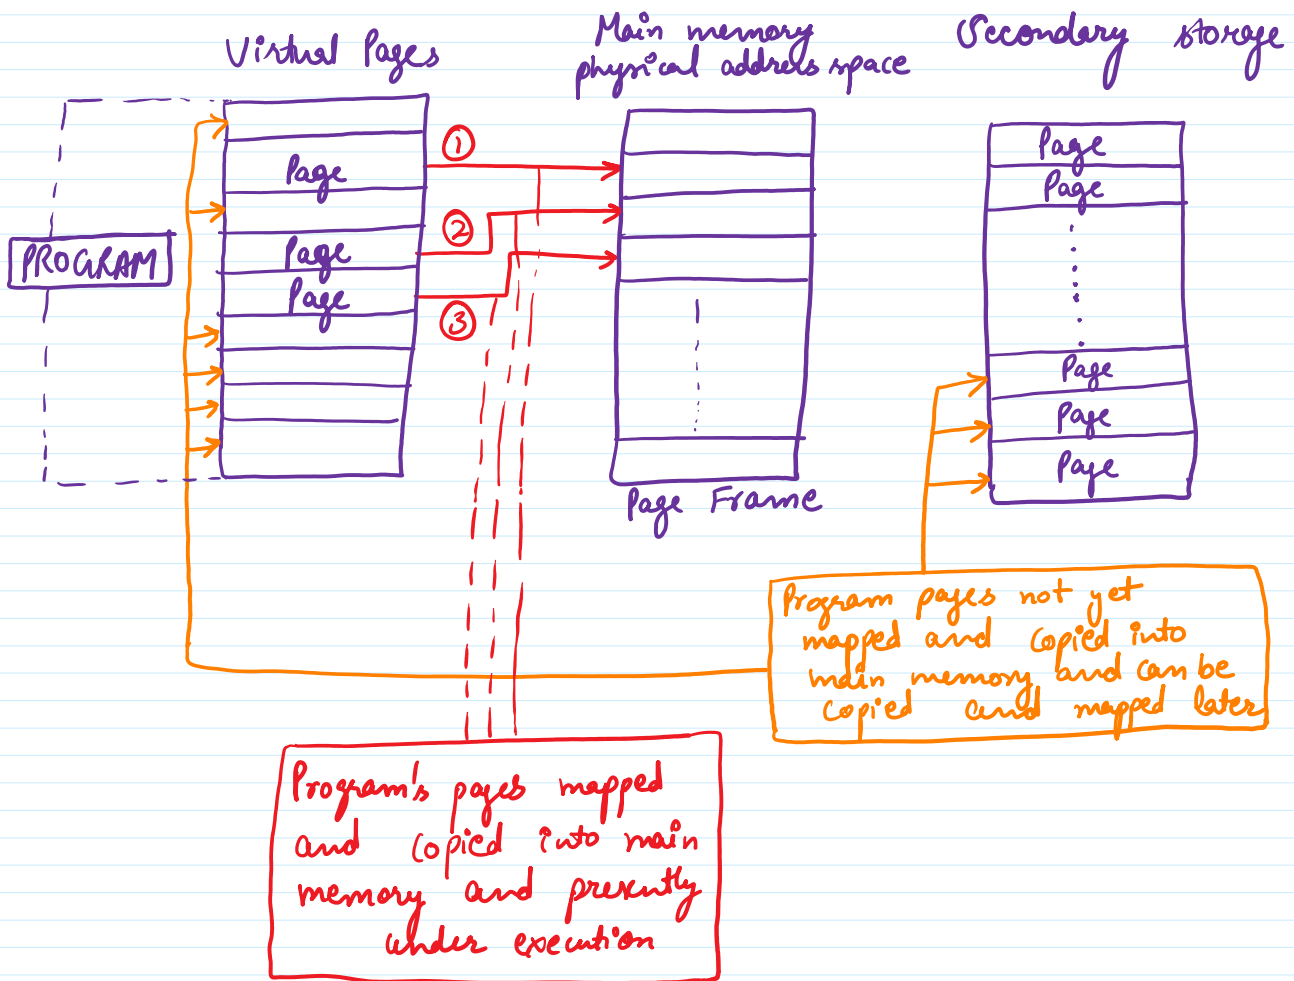 Virtual Pages
Main memory
physical address space
Secondary storage
PROGRAM
Page
Page
Page
1
2
3
Page Frame
Page
Page
Page
Page
Page
Program pages not yet
mapped and copied into
main memory and can be
copied and mapped later
Program's pages mapped
and copied into main
memory and presently
under execution